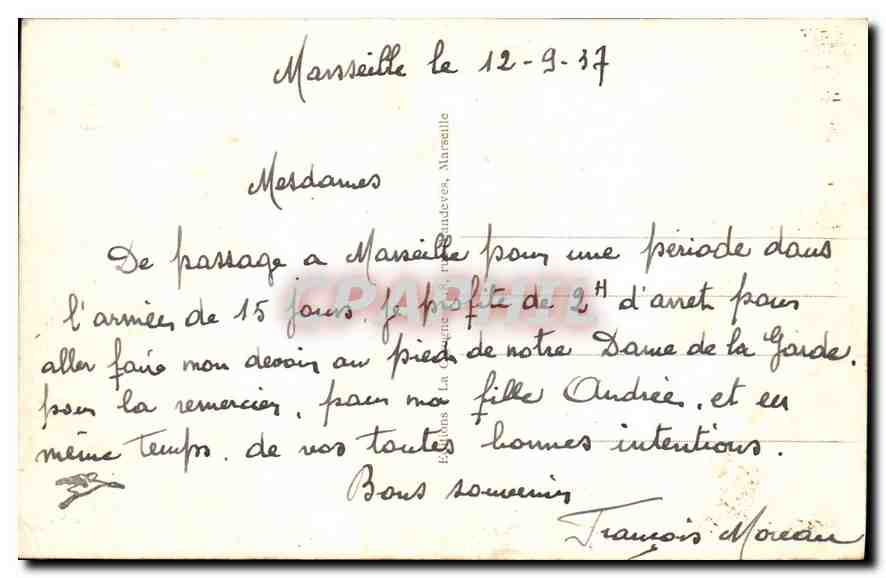 Marseille le 12-9-37
Mesdames
De passage a Marseille pour une période dans
l'armées de 15 jours. je profite de 2H d'arret pour
aller faire mon devoir au pied de notre Dame de la Garde.
pour la remercier, pour ma fille Andrée, et en
même temps. de vos toutes bonnes intentions.
Bons souvenirs
François Moreau
Editions La 8, rue Vandeves, Marseille
CPAPHIL